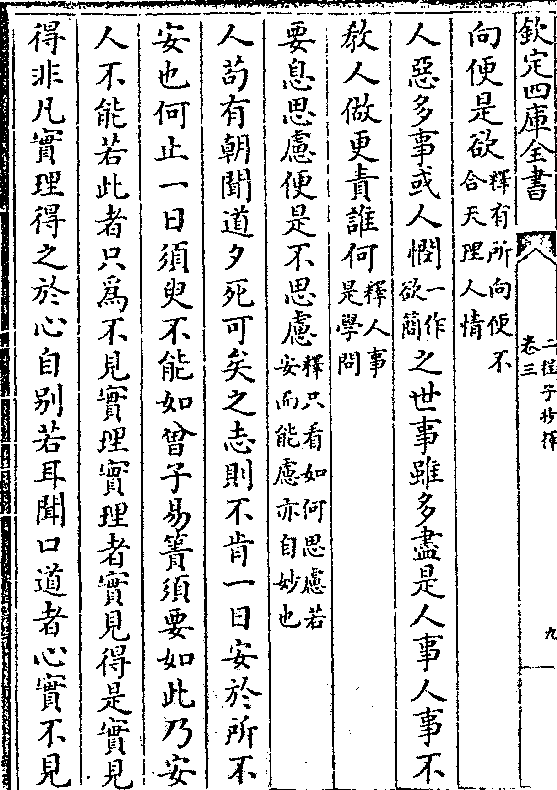 欽定四庫全書
二程子抄釋
卷三
九
向便是欲釋有所向便不合天理人情
人惡多事或人憫一作欲簡之世事雖多盡是人事人事不
教人做更責誰何釋人事是學問
要息思慮便是不思慮釋只看如何思慮若安而能慮亦自妙也
人苟有朝聞道夕死可矣之志則不肯一日安於所不
安也何止一日須臾不能如曾子易簀須要如此乃安
人不能若此者只為不見實理實理者實見得是實見
得非凡實理得之於心自别若耳聞口道者心實不見